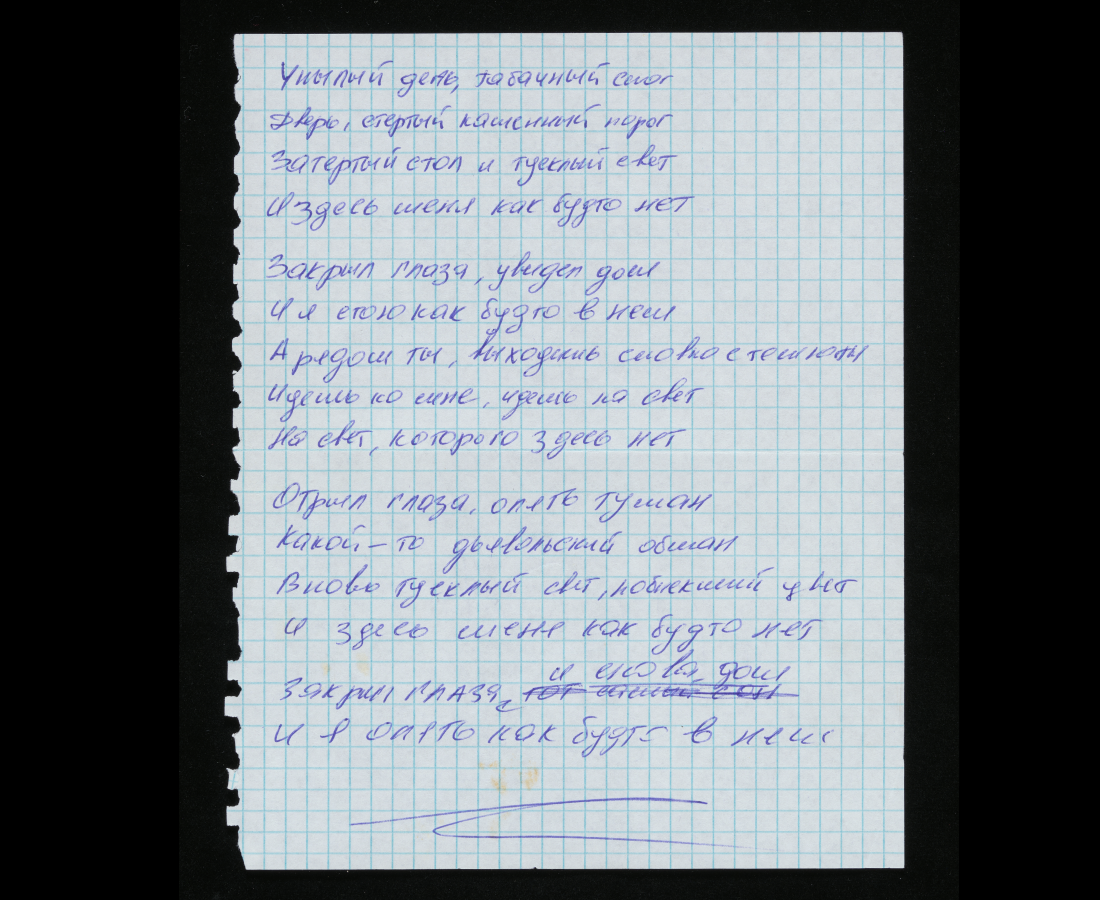 Унылый день, табачный смог
Дверь, стертый каменный порог
Затертый стол и тусклый свет
И здесь меня как будто нет
Закрыл глаза, увидел дом
И я стою как будто в нем
А рядом ты, выходишь словно с темноты
Идешь ко мне, идешь на свет
На свет, которого здесь нет
Отрыл глаза, опять туман
Какой-то дьявольский обман
Вновь тусклый свет, поблекший цвет
И здесь меня как будто нет
и снова дом
Закрыл глаза, тот самый сон
И я опять как будто в нем